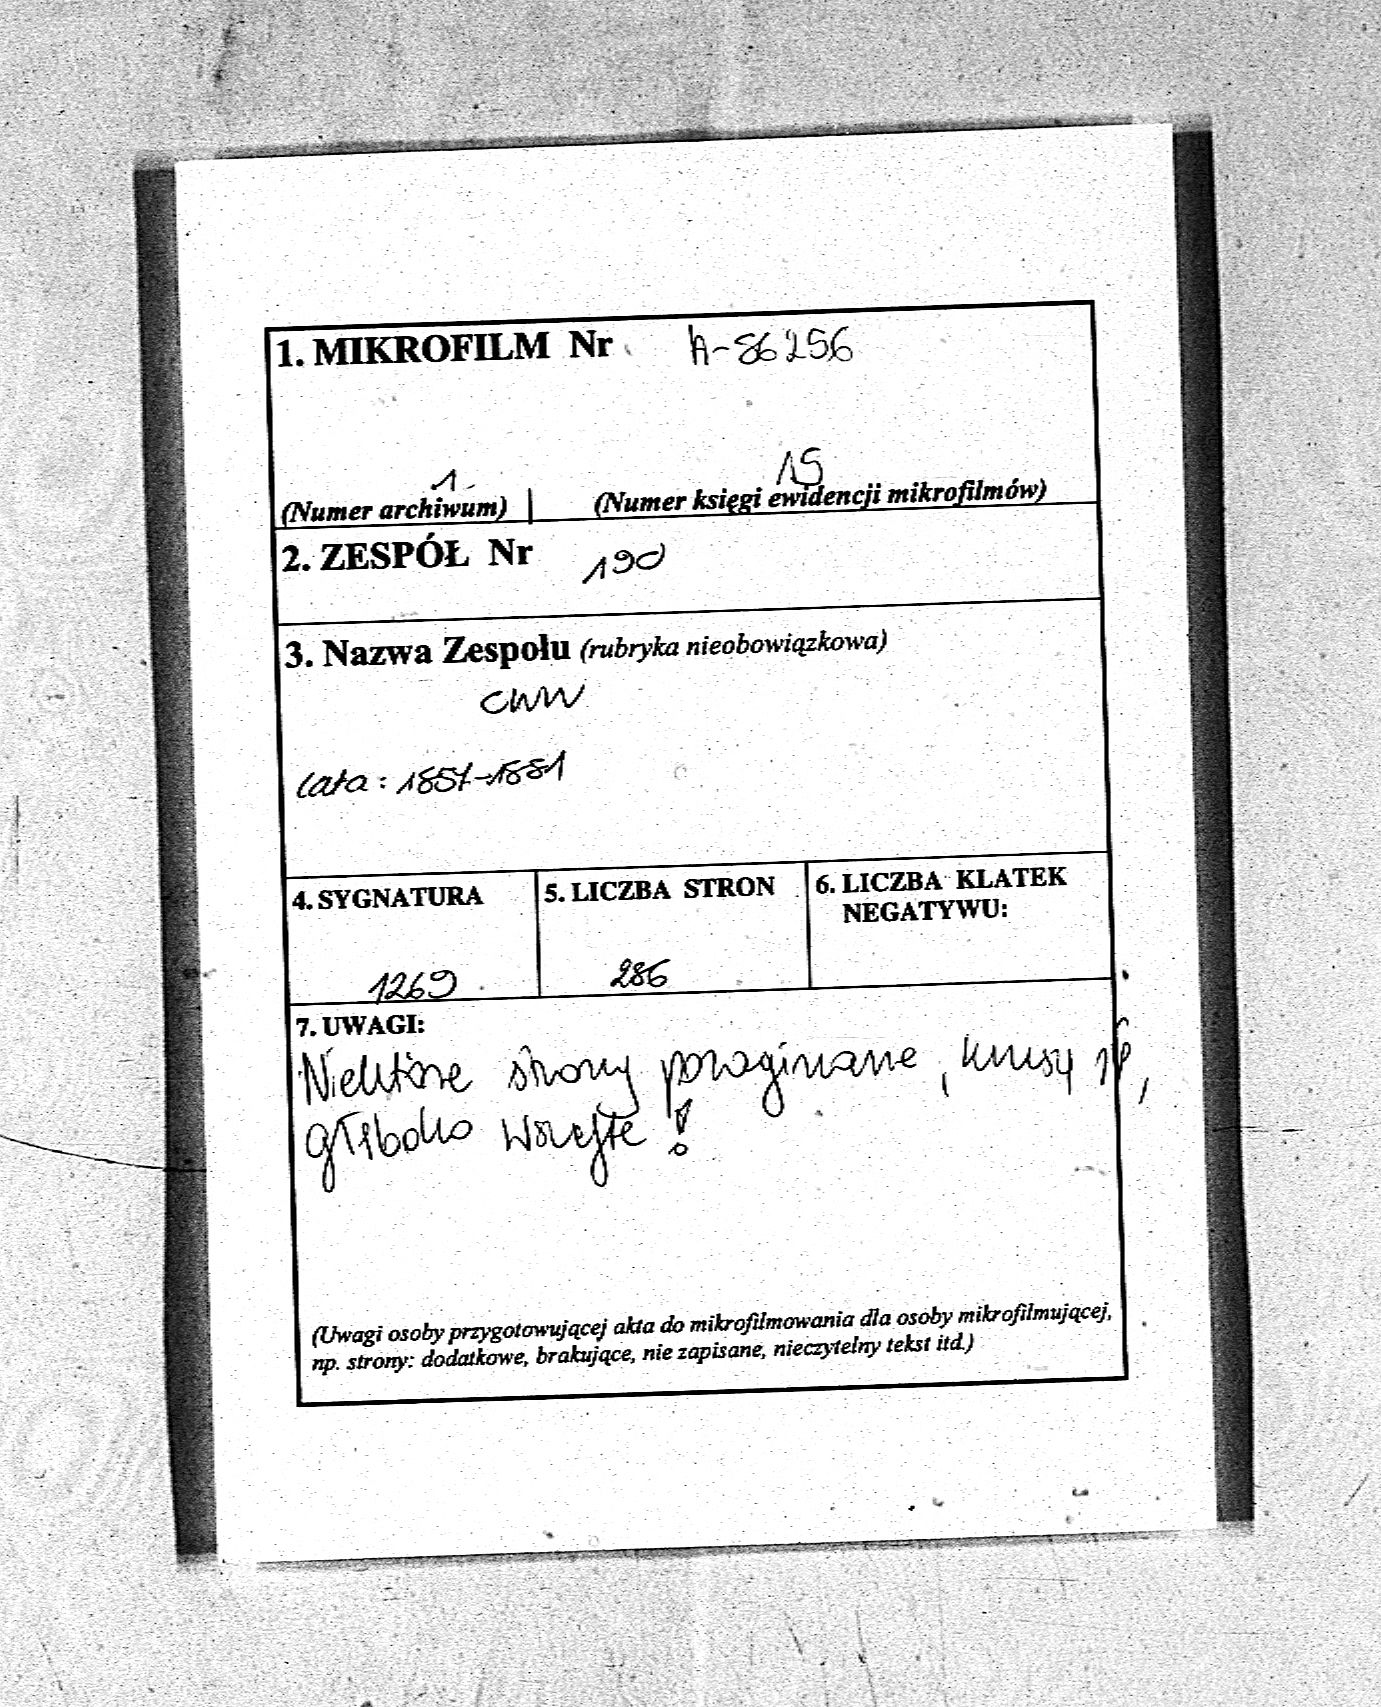 1. MIKROFILM Nr A-86256
1 15
(Numer archiwum) | (Numer księgi ewidencji mikrofilmów)
2. ZESPÓŁ Nr 190
3. Nazwa Zespołu (rubryka nieobowiązkowa)
CWW
lata: 1857-1881
4. SYGNATURA
1269
5. LICZBA STRON
286
6. LICZBA KLATEK
NEGATYWU:
7. UWAGI:
Niektóre strony pozaginane, kruszą się,
głęboko wszyte!
(Uwagi osoby przygotowującej akta do mikrofilmowania dla osoby mikrofilmującej,
np. strony: dodatkowe, brakujące, nie zapisane, nieczytelny tekst itd.)